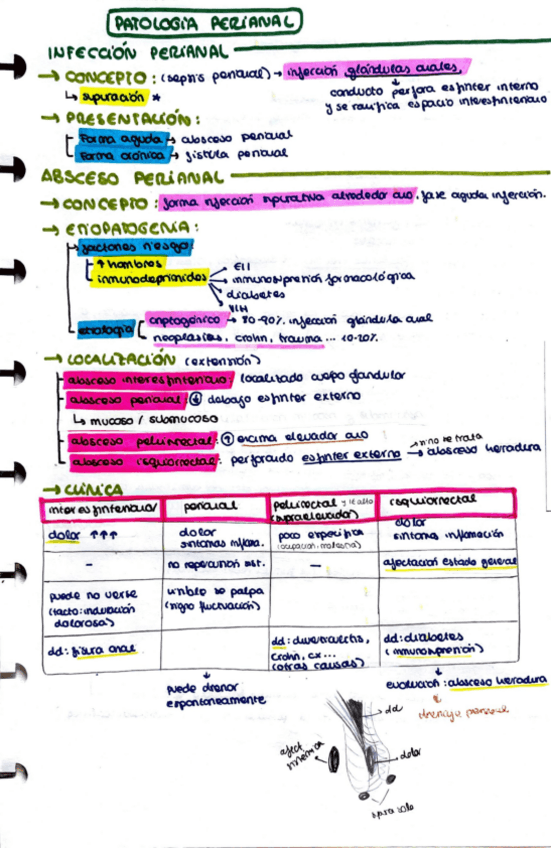 PATOLOGÍA PERIANAL
INFECCIÓN PERIANAL
→ CONCEPTO: (sepsis perianal) → infección glándulas anales,
↳ supuración * conducto perfora esfínter interno
y se ramifica espacio interesfinteriano
→ PRESENTACIÓN:
Forma aguda → absceso perianal
Forma crónica → fístula perianal
ABSCESO PERIANAL
→ CONCEPTO: forma infección supurativa alrededor ano, fase aguda infección.
→ ETIOPATOGENIA:
factores riesgo:
↑ hombres
inmunodeprimidos → EII
→ inmunosupresión farmacológica
→ diabetes
→ VIH
etiología criptogénico → 80-90% infección glándula anal
neoplasias, crohn, trauma... 10-20%.
→ LOCALIZACIÓN (extensión)
absceso interesfinteriano: localizado cuerpo glandular
absceso perianal: ↓ debajo esfínter externo
↳ mucoso / submucoso
absceso pelvirrectal: ↑ encima elevador ano
absceso isquiorrectal: perforando esfínter externo → si no se trata absceso herradura
→ CLÍNICA
interesfinteriano perianal pelvirrectal y il alto (supraelevador) isquiorrectal
dolor ↑↑↑ dolor síntomas inflam. poco específica (ocupación, molestia) dolor síntoma inflamación
- no repercusión sist. - afectación estado general
puede no verse (tacto: induración dolorosa) visible se palpa (signo fluctuación)
dd: fisura anal dd: diverticulitis, Crohn, cx... (otras causas) dd: diabetes (inmunosupresión)
↓ puede drenar espontáneamente
↓ evolución: absceso herradura
↓ drenaje
dd
dolor
afect